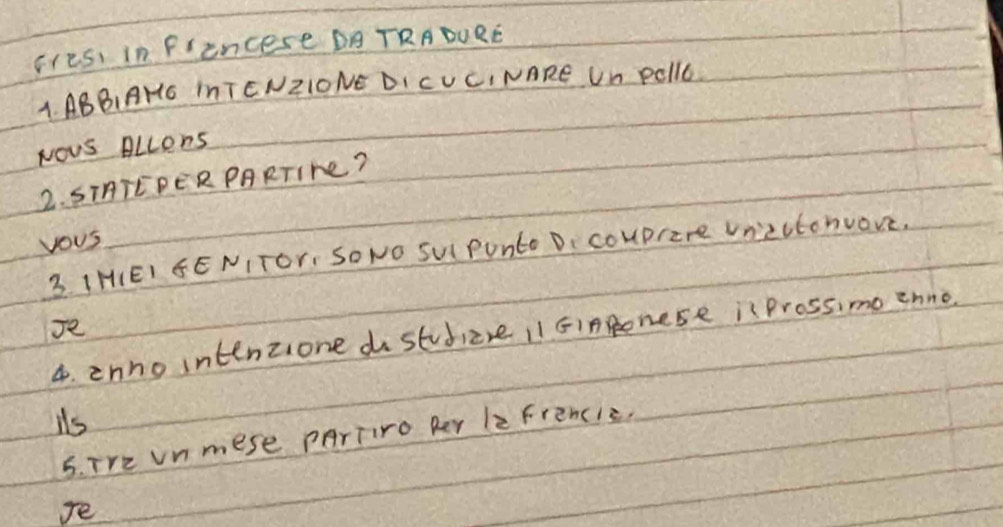 Frasi in Francese DA TRADURE
1. ABBIAMO INTENZIONE DI CUCINARE Un pollo.
NOUS ALLONS
2. STATE PER PARTIRE?
VOUS
3. I MIEI GENITORI SONO SUL PUNTO Di comprare un'auto nuova.
Je
4. anno intenzione di studiare il GIAPPONESE il Prossimo anno.
Ils
5. Tra un mese PARTIRO Per la Francia.
Je